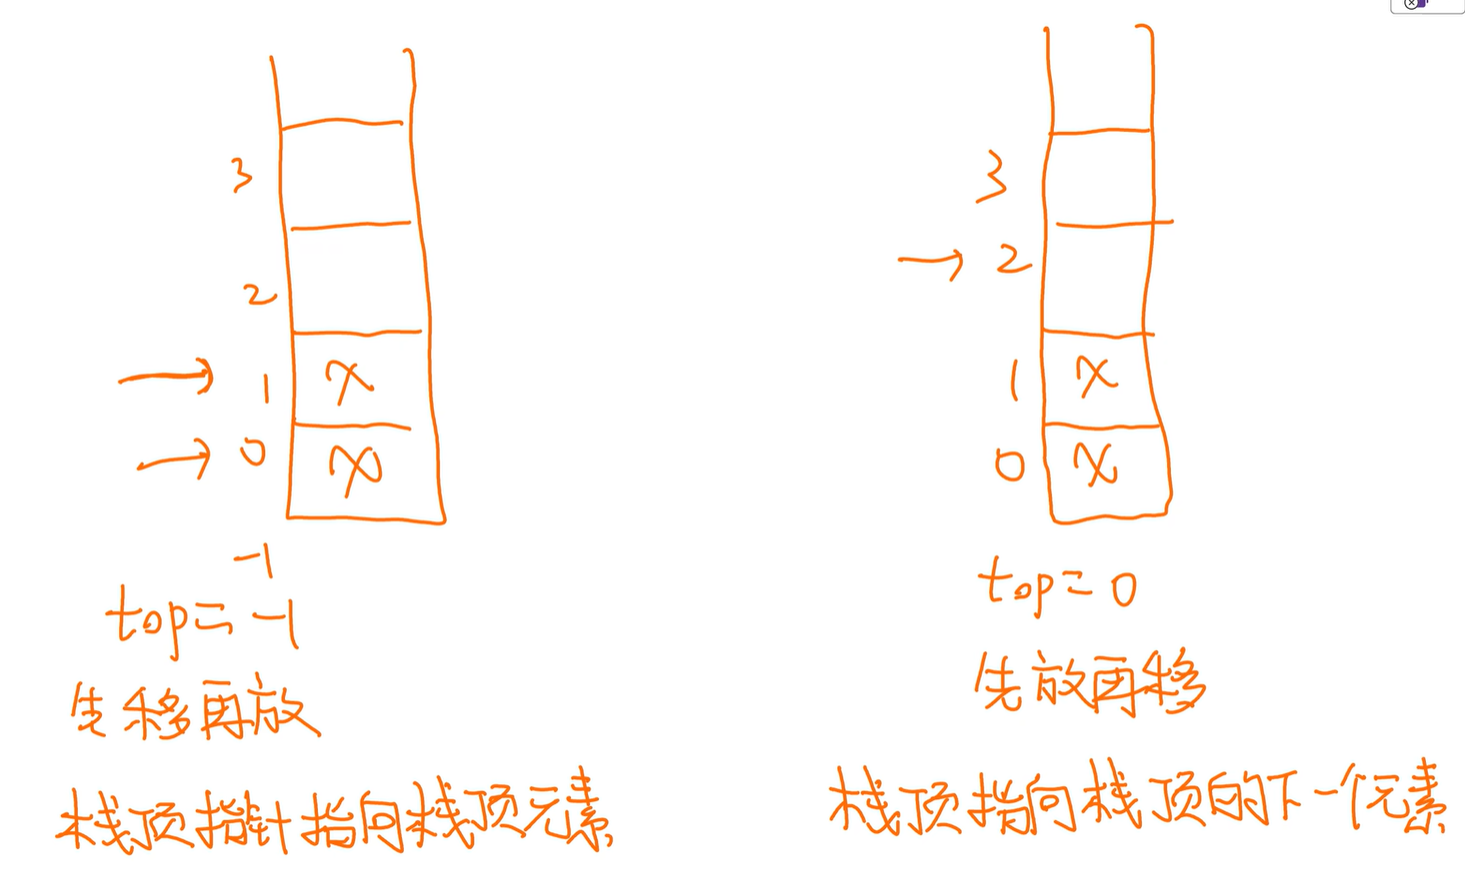 3
2
→ 1 X
→ 0 X
-1
top = -1
先移再放
栈顶指针指向栈顶元素
3
→ 2
1 X
0 X
top = 0
先放再移
栈顶指向栈顶的下一个元素